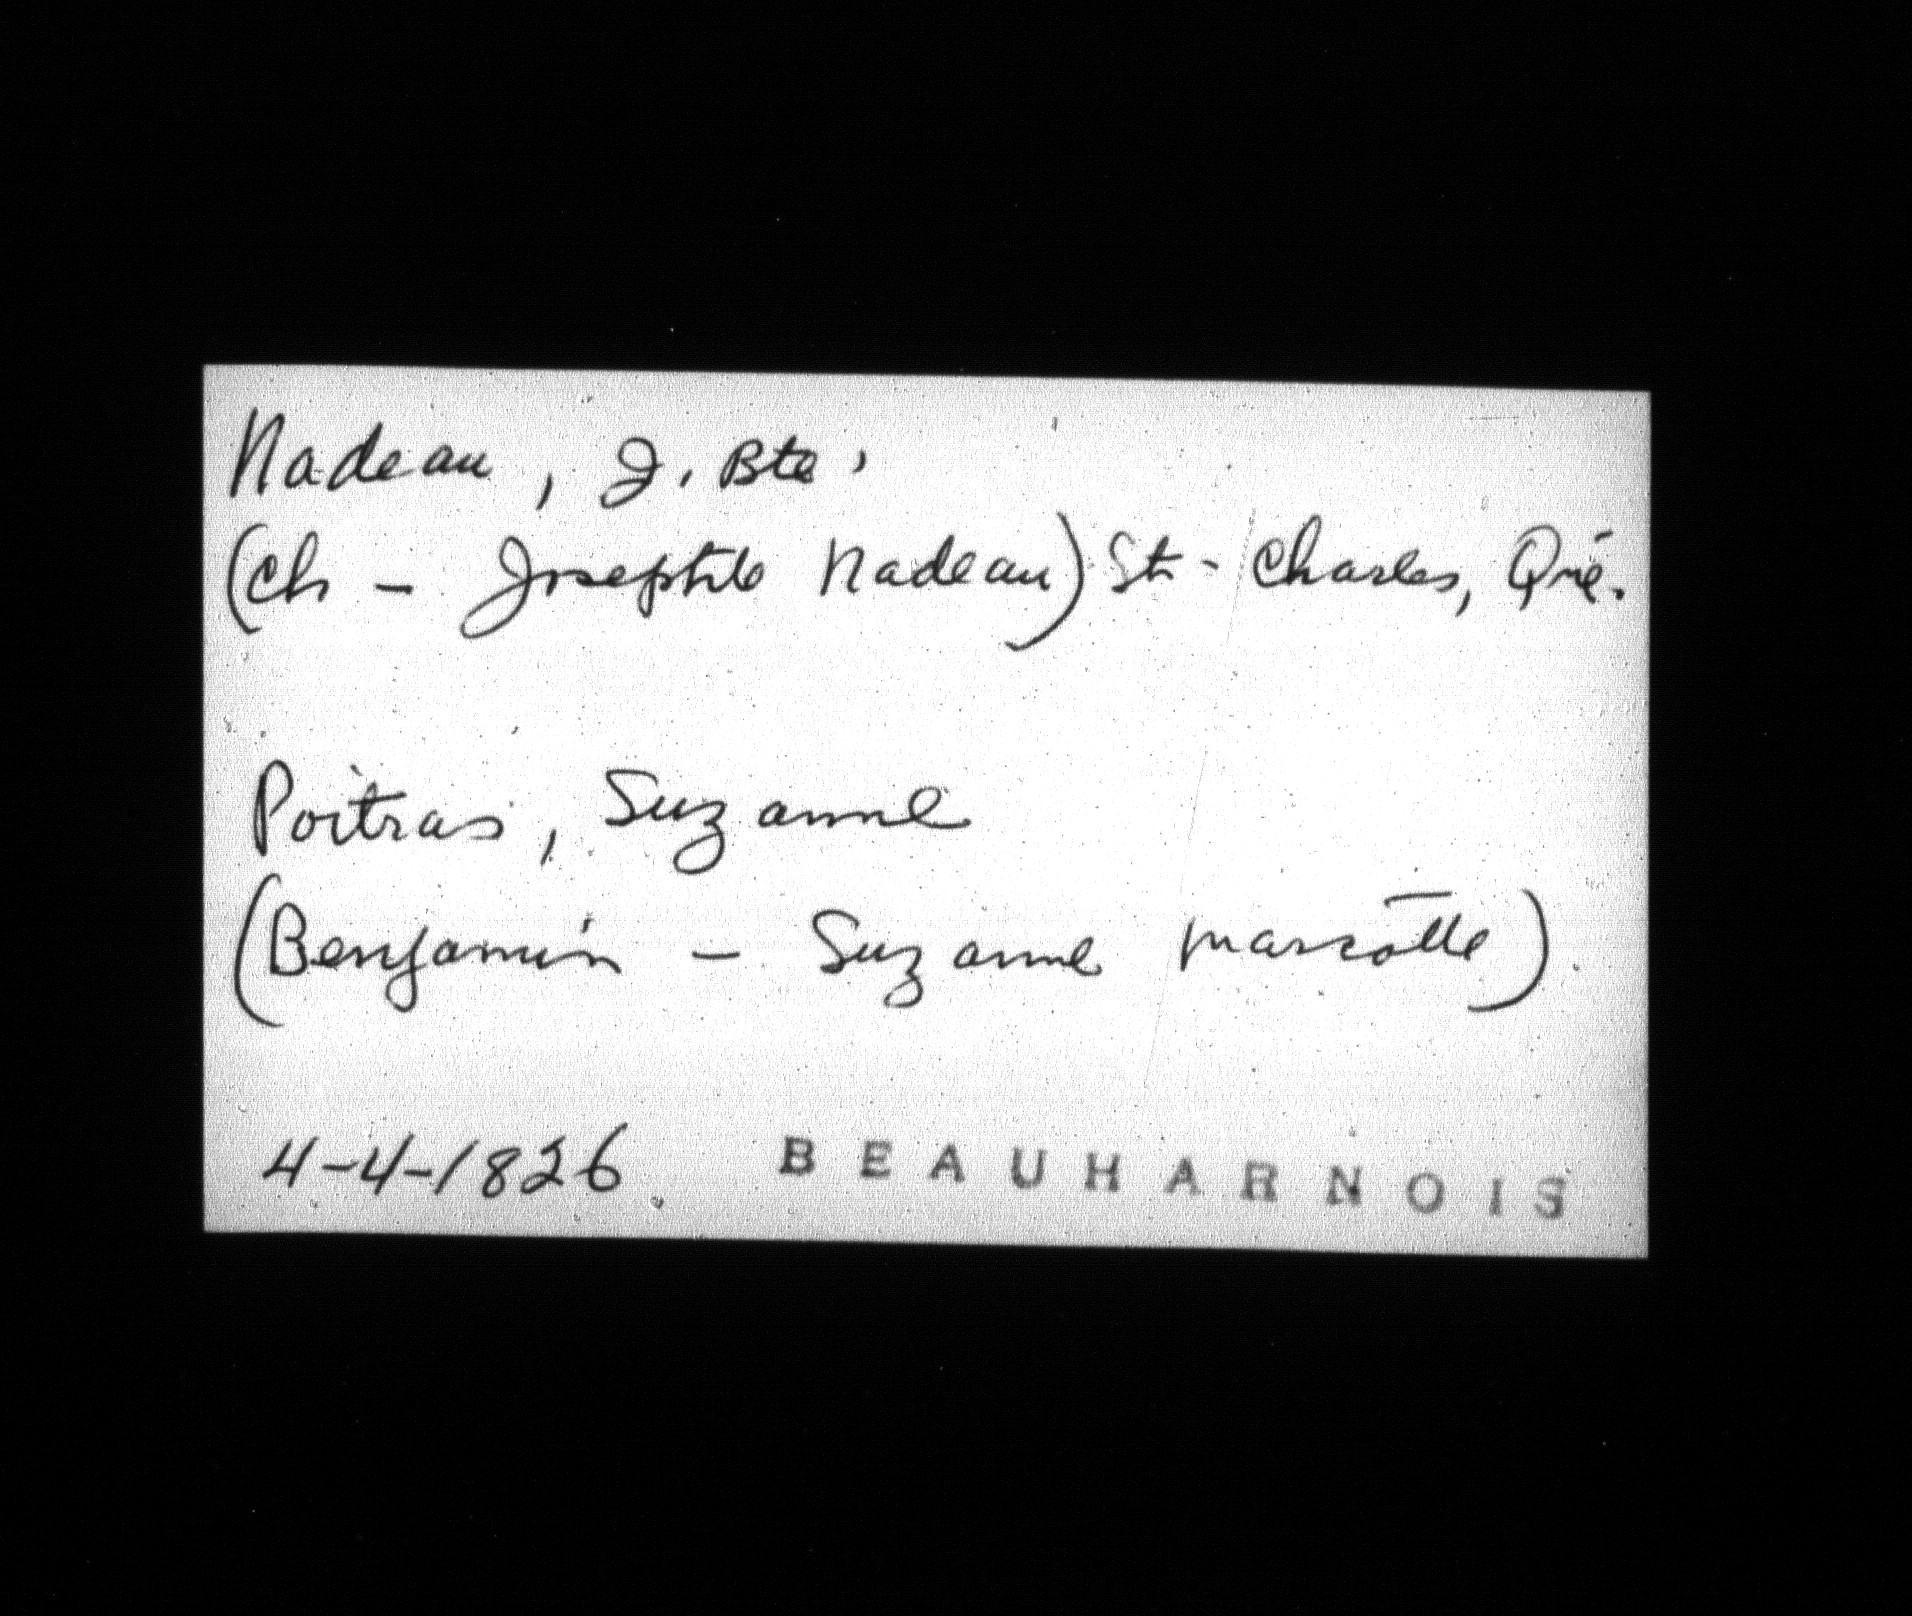 Nadeau, J. Bte,
(Ch - Josephte Nadeau) St-Charles, Qué.
Poitras, Suzanne
(Benjamin - Suzanne Marcotte).
4-4-1826. BEAUHARNOIS